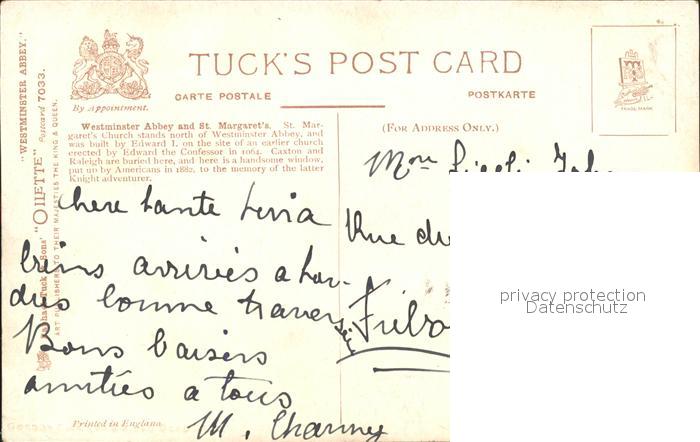 TUCK'S POST CARD
CARTE POSTALE
POSTKARTE
By Appointment.
TRADE MARK
"WESTMINSTER ABBEY."
"OILETTE" Postcard 7033.
Raphael Tuck & Sons'
ART PUBLISHERS TO THEIR MAJESTIES THE KING & QUEEN.
Westminster Abbey and St. Margaret's. St. Mar-
garet's Church stands north of Westminster Abbey, and
was built by Edward I. on the site of an earlier church
erected by Edward the Confessor in 1064. Caxton and
Raleigh are buried here, and here is a handsome window,
put up by Americans in 1882, to the memory of the latter
Knight adventurer.
(FOR ADDRESS ONLY.)
Rue du
Chère tante
arrivés à Lon-
dres bonne traver
sée
Bons baisers
amitiés à tous
Printed in England.
privacy protection
Datenschutz